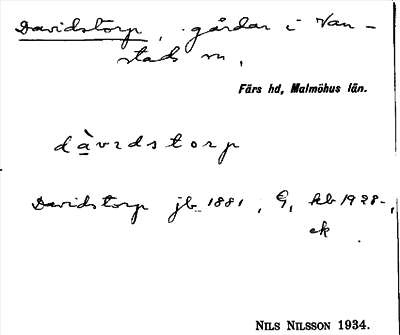 Davidstorp, gårdar i Van-
stads sn,
Färs hd, Malmöhus län.
dàvidstorp
Davidstorp jb 1881, G, kb 1928-,
ek.
NILS NILSSON 1934.